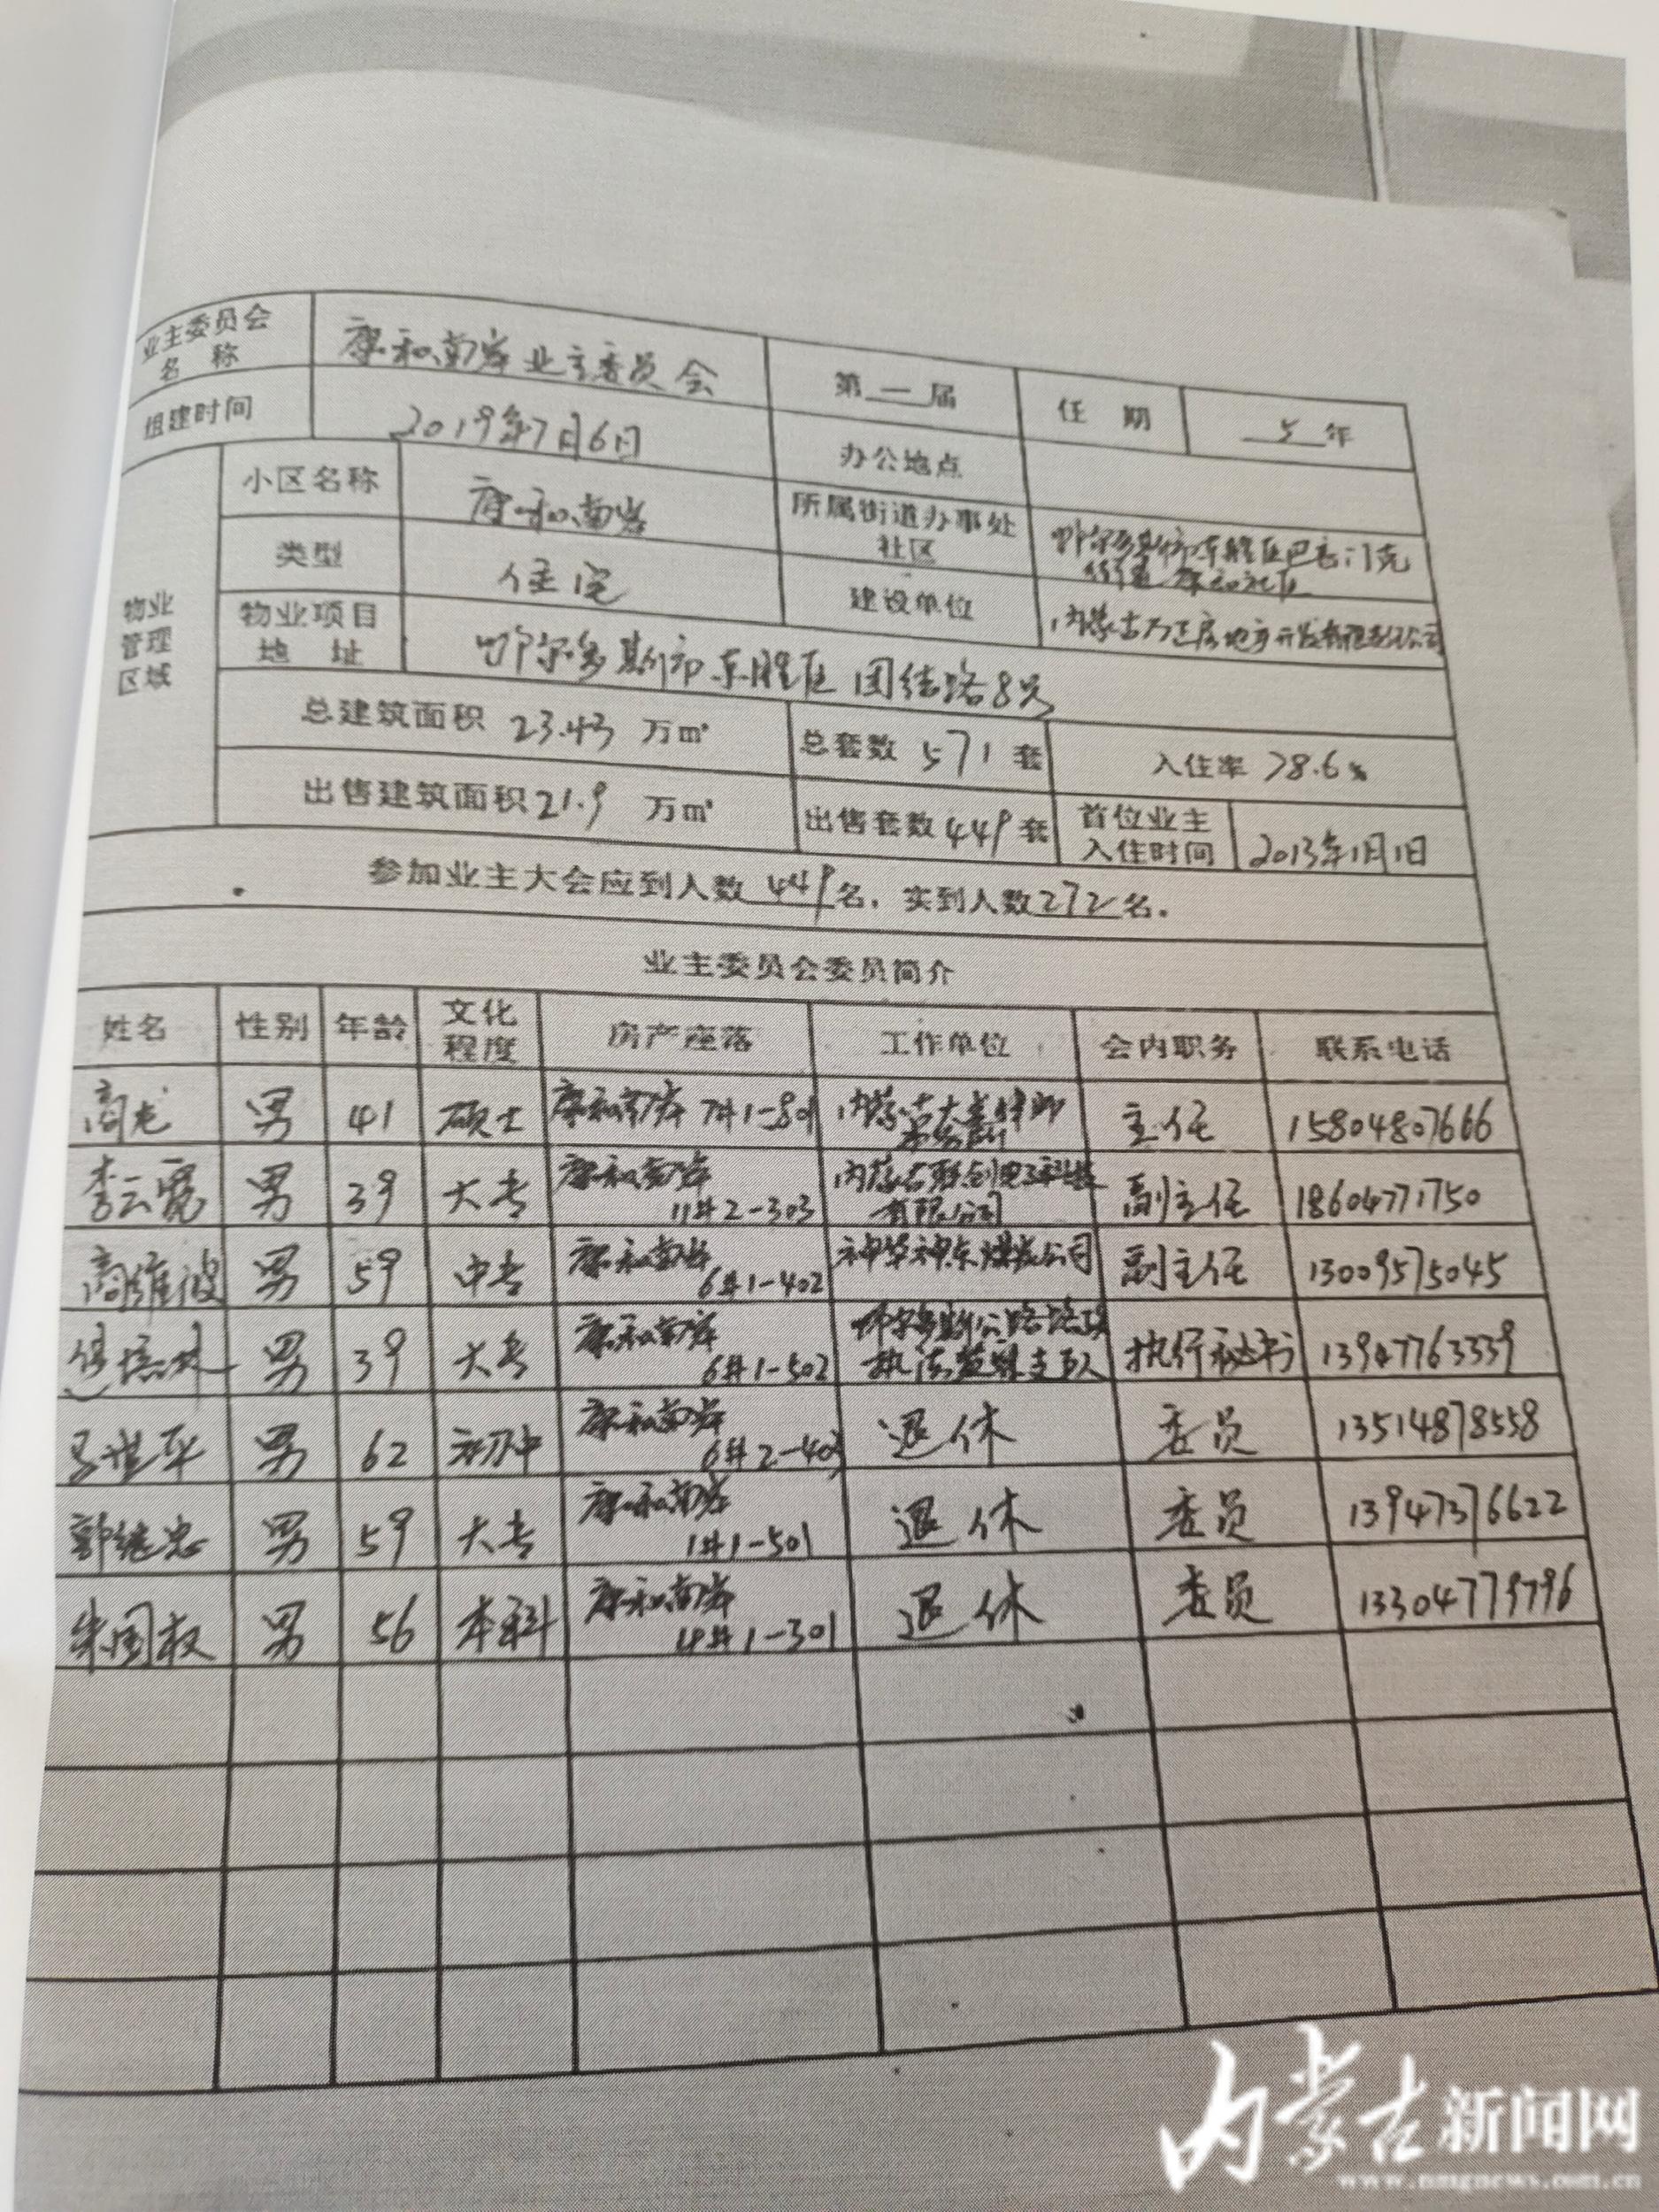 业主委员会
名 称
康和南岸业主委员会
第一届
任 期
5年
组建时间
2019年7月6日
办公地点
物业
管理
区域
小区名称
康和南岸
所属街道办事处
社区
鄂尔多斯市东胜区巴音门克
街道
类型
住宅
建设单位
内蒙古万正房地产开发有限责任公司
物业项目
地 址
鄂尔多斯市东胜区团结路8号
总建筑面积 23.43 万㎡
总套数 571 套
入住率 78.6%
出售建筑面积 21.9 万㎡
出售套数 449 套
首位业主
入住时间
2013年1月1日
参加业主大会应到人数 449 名，实到人数 272 名。
业主委员会委员简介
姓名 性别 年龄 文化程度 房产座落 工作单位 会内职务 联系电话
高龙 男 41 硕士 康和南岸 7#1-801 内蒙古大 律师 主任 15804807666
李云宽 男 39 大专 康和南岸 11#2-303 内蒙古联创 有限公司 副主任 18604771750
高维波 男 59 中专 康和南岸 6#1-402 神华神东煤炭公司 副主任 13009575045
男 39 大专 康和南岸 6#1-502 鄂尔多斯公路路政执法 支队 执行秘书 13947763339
平 男 62 初中 康和南岸 6#2-403 退休 委员 13514878558
郭继忠 男 59 大专 康和南岸 1#1-501 退休 委员 13947376622
朱国权 男 56 本科 康和南岸 #1-301 退休 委员 13304779796
内蒙古新闻网
www.nmgnews.com.cn